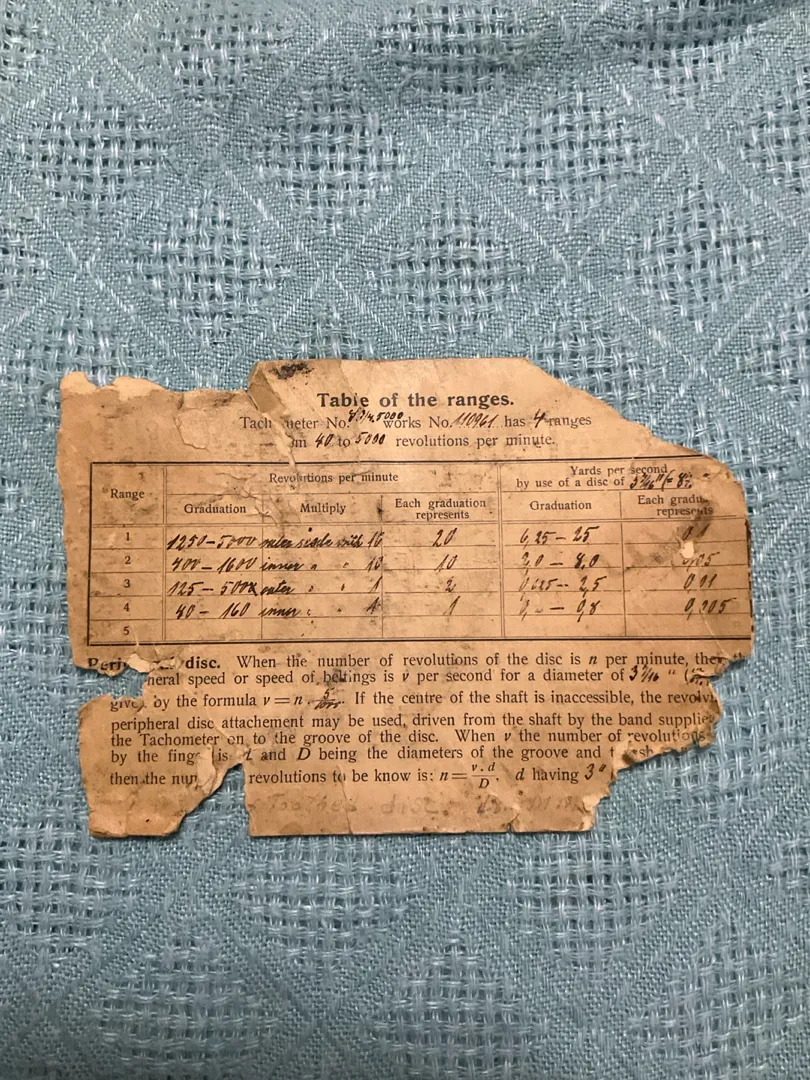 Table of the ranges.
Tach meter No. 5000 works No. 110961 has 4 ranges
m 40 to 5000 revolutions per minute.
Range
Revolutions per minute
Yards per second
by use of a disc of 3 7/16"
Graduation Multiply Each graduation represents Graduation Each gradu represents
1 1250–5000 outer scale with 16 20 6,25–25
2 400–1600 inner " " 10 10 2,0–8,0 0,05
3 125–500 outer " " 1 2 0,625–2,5 0,01
4 40–160 inner " " 1 0,005
5
Peri disc. When the number of revolutions of the disc is n per minute, then
neral speed or speed of beltings is v per second for a diameter of 3 7/16 "
give by the formula v = n . 5 If the centre of the shaft is inaccessible, the revolv
peripheral disc attachement may be used, driven from the shaft by the band supplie
the Tachometer on to the groove of the disc. When v the number of revolutions
by the fing is d and D being the diameters of the groove and t sh
then the num revolutions to be know is: n = v . d / D . d having 3"